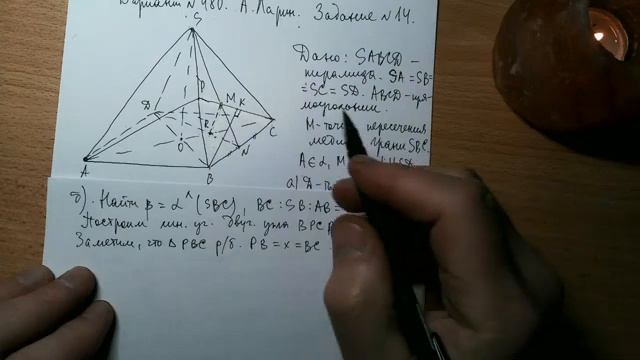 Вариант №480. А. Ларин. Задание №14.
S
Дано: SABCD –
пирамида. SA = SB =
= SC = SD. ABCD – пря-
моугольник.
M – точка пересечения
медиан грани SBC.
A ∈ α, M
а)
P
M K
D
C
O
N
A
B
б). Найти β = α ^ (SBC), BC : SB : AB =
Построим лин. уг. двуг. угла BPC
Заметим, что Δ PBC р/б. PB = x = BC